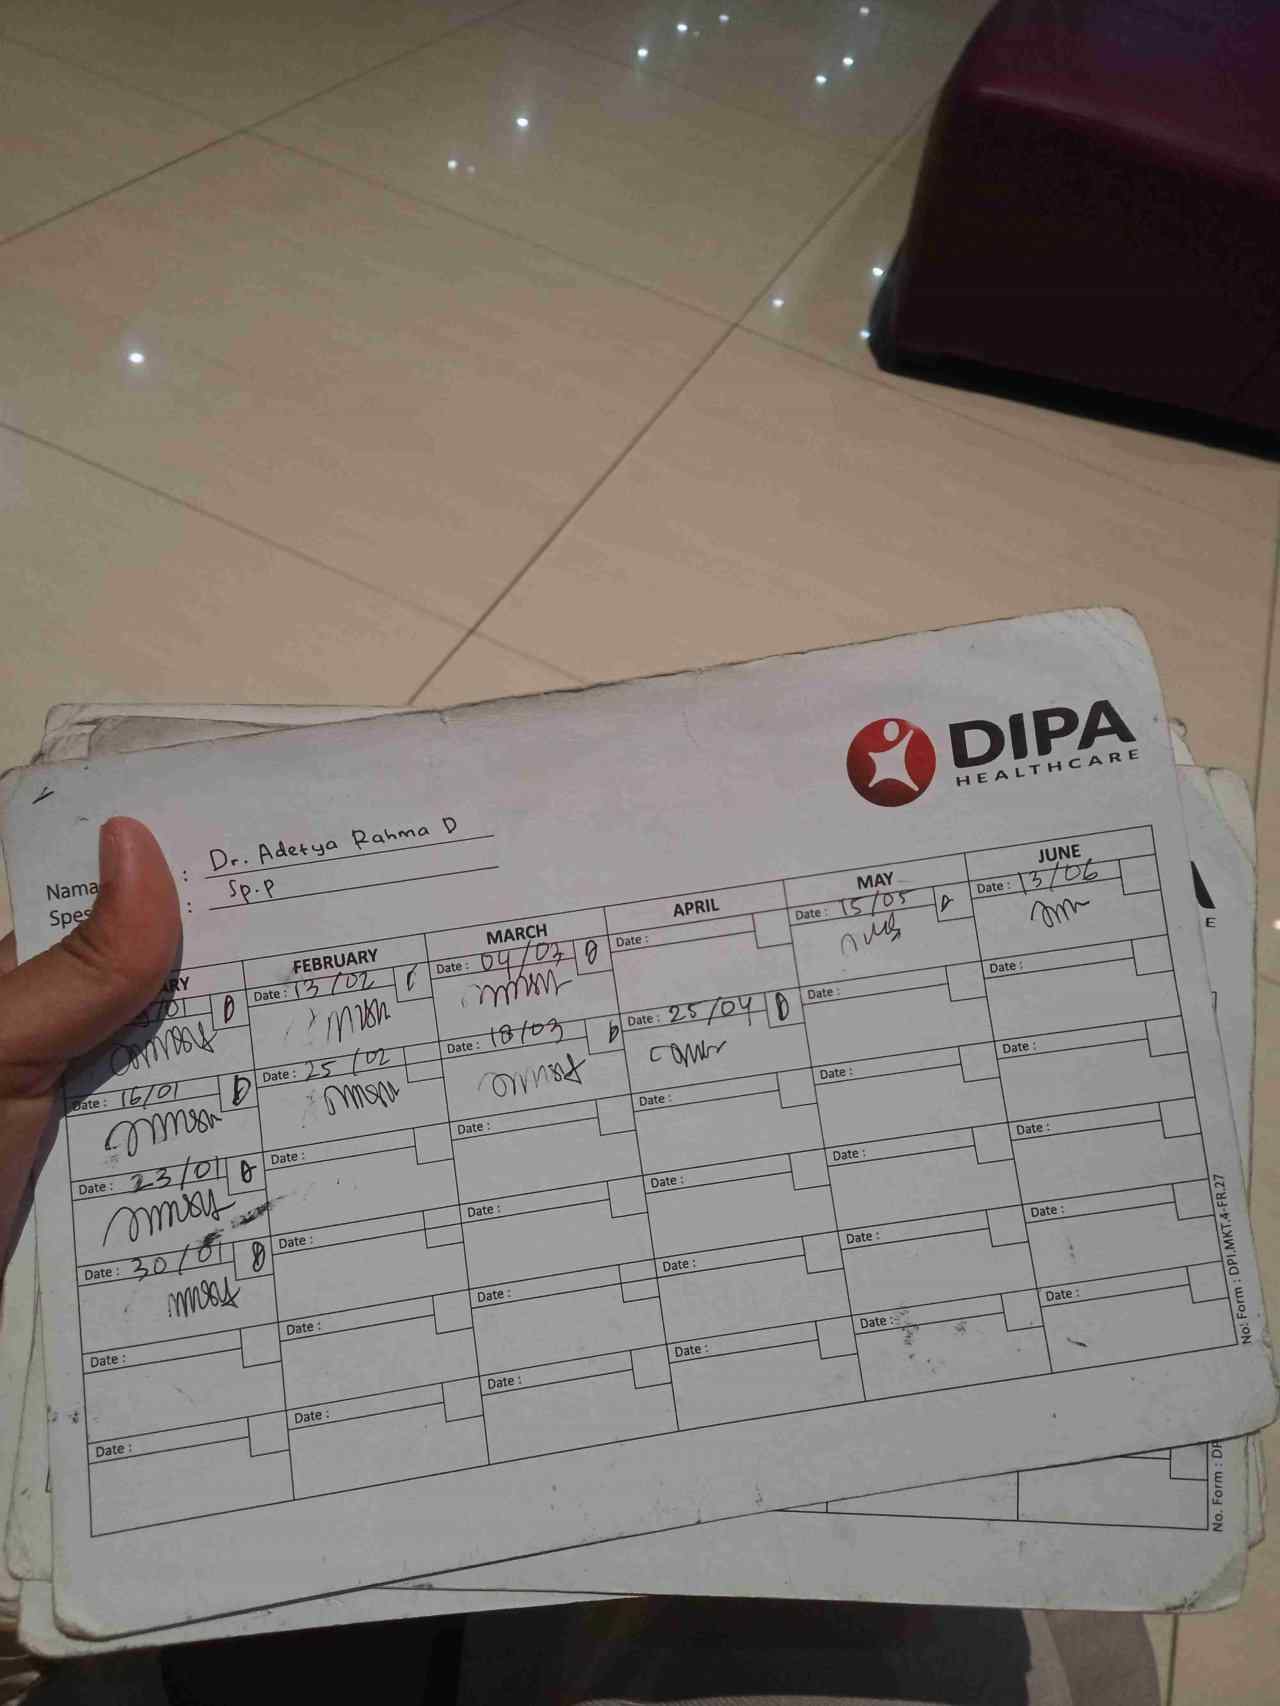 DIPA
HEALTHCARE
Nama : Dr. Adetya Rahma D
Spes : Sp.P
ARY FEBRUARY MARCH APRIL MAY JUNE
/01 Date : 13/02 Date : 04/03 Date : Date : 15/05 Date : 13/06
Date : 16/01 Date : 25/02 Date : 18/03 Date : 25/04 Date : Date :
Date : 23/01 Date : Date : Date : Date : Date :
Date : 30/01 Date : Date : Date : Date : Date :
Date : Date : Date : Date : Date : Date :
Date : Date : Date : Date : Date : Date :
No: Form : DPI.MKT.4-FR.27
E
No. Form : DP